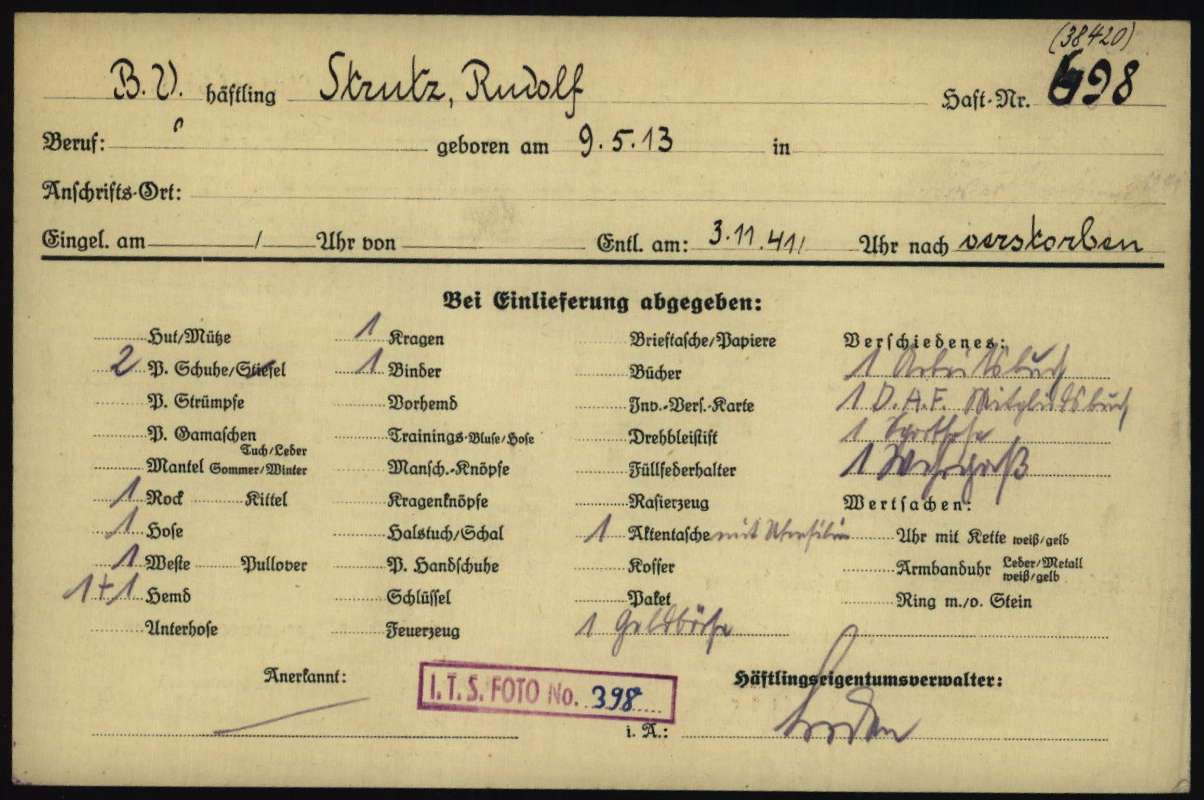 (38420)
B.V. häftling Strutz, Rudolf Haft-Nr. 698
Beruf: geboren am 9.5.13 in
Anschrifts-Ort:
Eingel. am / Uhr von Entl. am: 3.11.41, Uhr nach verstorben
Bei Einlieferung abgegeben:
Hut/Mütze 1 Kragen Brieftasche/Papiere Verschiedenes:
2 P. Schuhe/Stiefel 1 Binder Bücher 1 Arbeitsbuch
P. Strümpfe Vorhemd Inv.-Vers.-Karte 1 D.A.F. Mitgliedsbuch
P. Gamaschen Trainings-Bluse/Hose Drehbleistift 1 Sporthose
Tuch/Leder
Mantel Sommer/Winter Mansch.-Knöpfe Füllfederhalter 1 Wehrpaß
1 Rock Kittel Kragenknöpfe Rasierzeug Wertsachen:
1 Hose Halstuch/Schal 1 Aktentasche mit Uhr mit Kette weiß/gelb
1 Weste Pullover P. Handschuhe Koffer Armbanduhr Leder/Metall
weiß/gelb
1+1 Hemd Schlüssel Paket Ring m./o. Stein
Unterhose Feuerzeug 1 Geldbörse
Anerkannt: I.T.S. FOTO No. 398 Häftlingseigentumsverwalter:
i. A.: